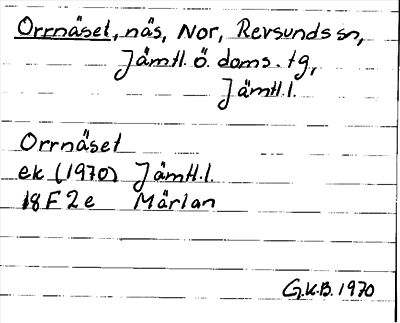 Orrnäset, näs, Nor, Revsunds sn,
Jämtl. ö. doms. tg,
Jämtl.l.
Orrnäset
ek (1970) Jämtl.l.
18 F 2 e Märlan
G.K.B. 1970